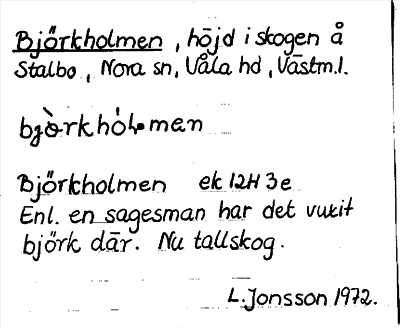 Björkholmen, höjd i skogen å
Stalbo, Nora sn, Våla hd, Västm.l.
bjò̀rkhól.men
Björkholmen ek 12H 3e
Enl. en sagesman har det vuxit
björk där. Nu tallskog.
L. Jonsson 1972.